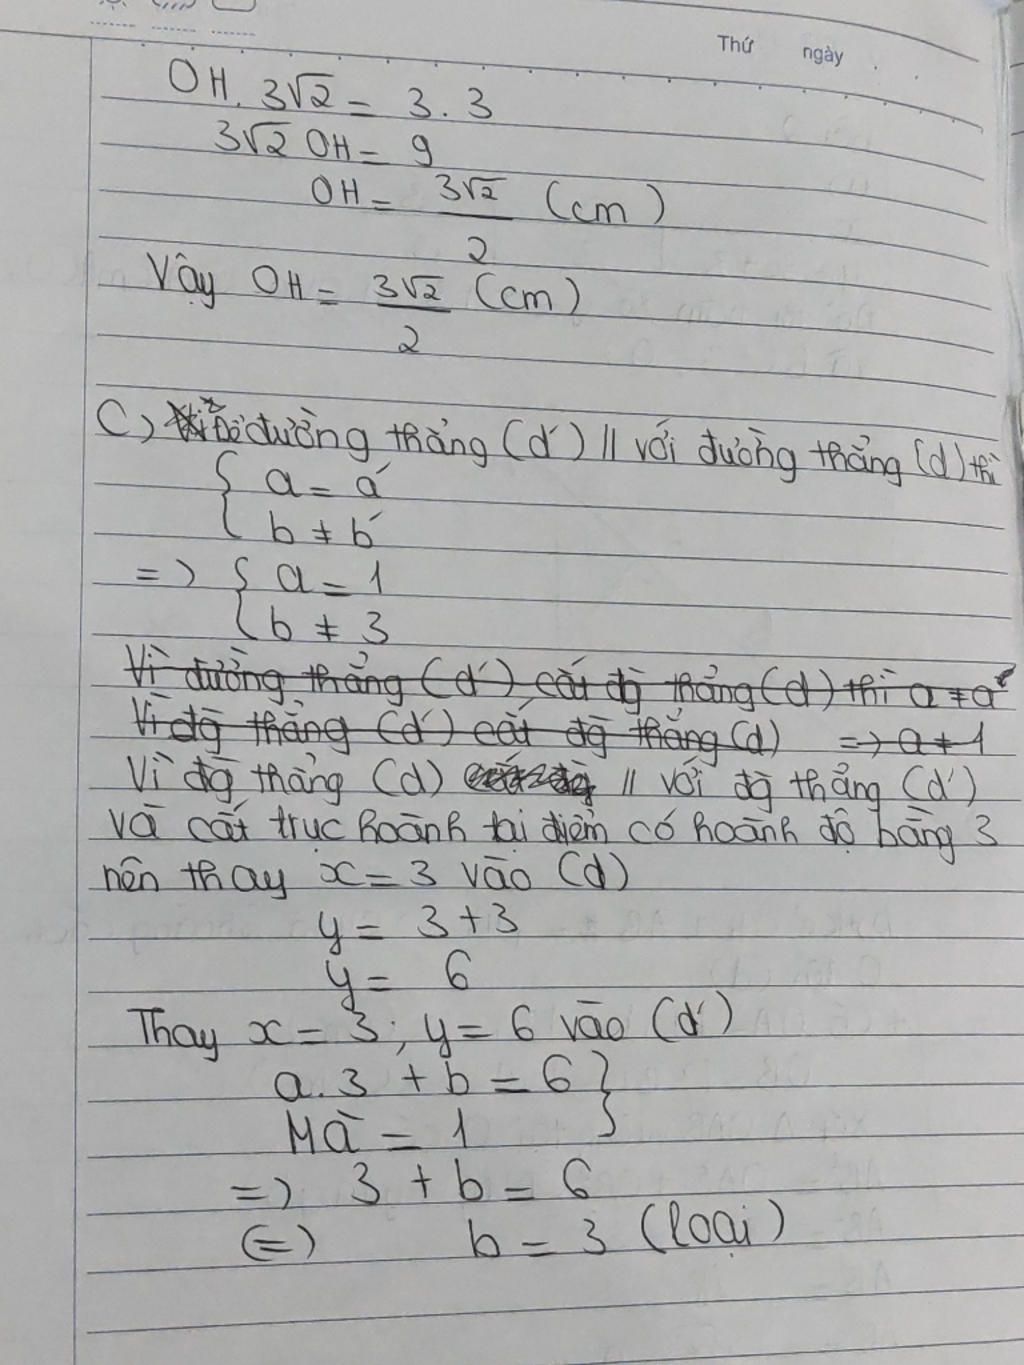 Thứ ngày
OH. 3√2 = 3.3
3√2 OH = 9
OH = 3√2/2 (cm)
Vậy OH = 3√2/2 (cm)
C) Để đường thẳng (d') // với đường thẳng (d) thì
{ a = a'
{ b ≠ b'
=> { a = 1
{ b ≠ 3
Vì đường thẳng (d') cắt đg thẳng (d) thì a ≠ a'
Vì đg thẳng (d') cắt đg thẳng (d) => a ≠ 1
Vì đg thẳng (d) // với đg thẳng (d')
và cắt trục hoành tại điểm có hoành độ bằng 3
nên thay x = 3 vào (d)
y = 3 + 3
y = 6
Thay x = 3; y = 6 vào (d')
a. 3 + b = 6 }
Mà = 1 }
=> 3 + b = 6
(=) b = 3 (loại)